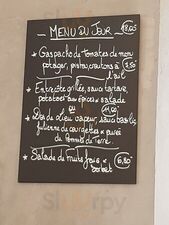 MENU DU JOUR 18,00€
* Gaspacho de Tomates de mon
potager, pistou, croutons à
l'ail 7,50€
* Entrecôte grillée, sauce tartare,
potatoes aux épices & salade
ou
Dos de Lieu vapeur, sauce basilic
julienne de courgettes & purée
de Pommes de Terre.
* Salade de fruits frais &
sorbet 6,80€
Sluurpy